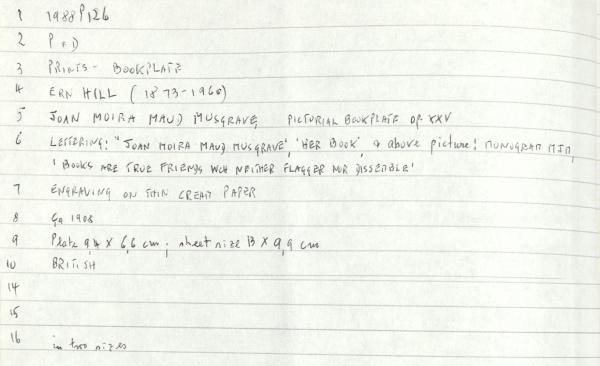 1 1988 P126
2 P & D
3 PRINTS - BOOKPLATE
4 ERN HILL (1873-1960)
5 JOAN MOIRA MAUD MUSGRAVE, PICTORIAL BOOKPLATE OF XXV
6 LETTERING: "JOAN MOIRA MAUD MUSGRAVE', 'HER BOOK', & above picture: MONOGRAM MJM,
'BOOKS ARE TRUE FRIENDS WCH NEITHER FLAGGER NOR DISSEMBLE'
7 ENGRAVING ON THIN CREAM PAPER
8 Ca 1908
9 Plate 9,4 X 6,6 cm; sheet size 13 X 9,9 cm
10 BRITISH
14
15
16 in two sizes